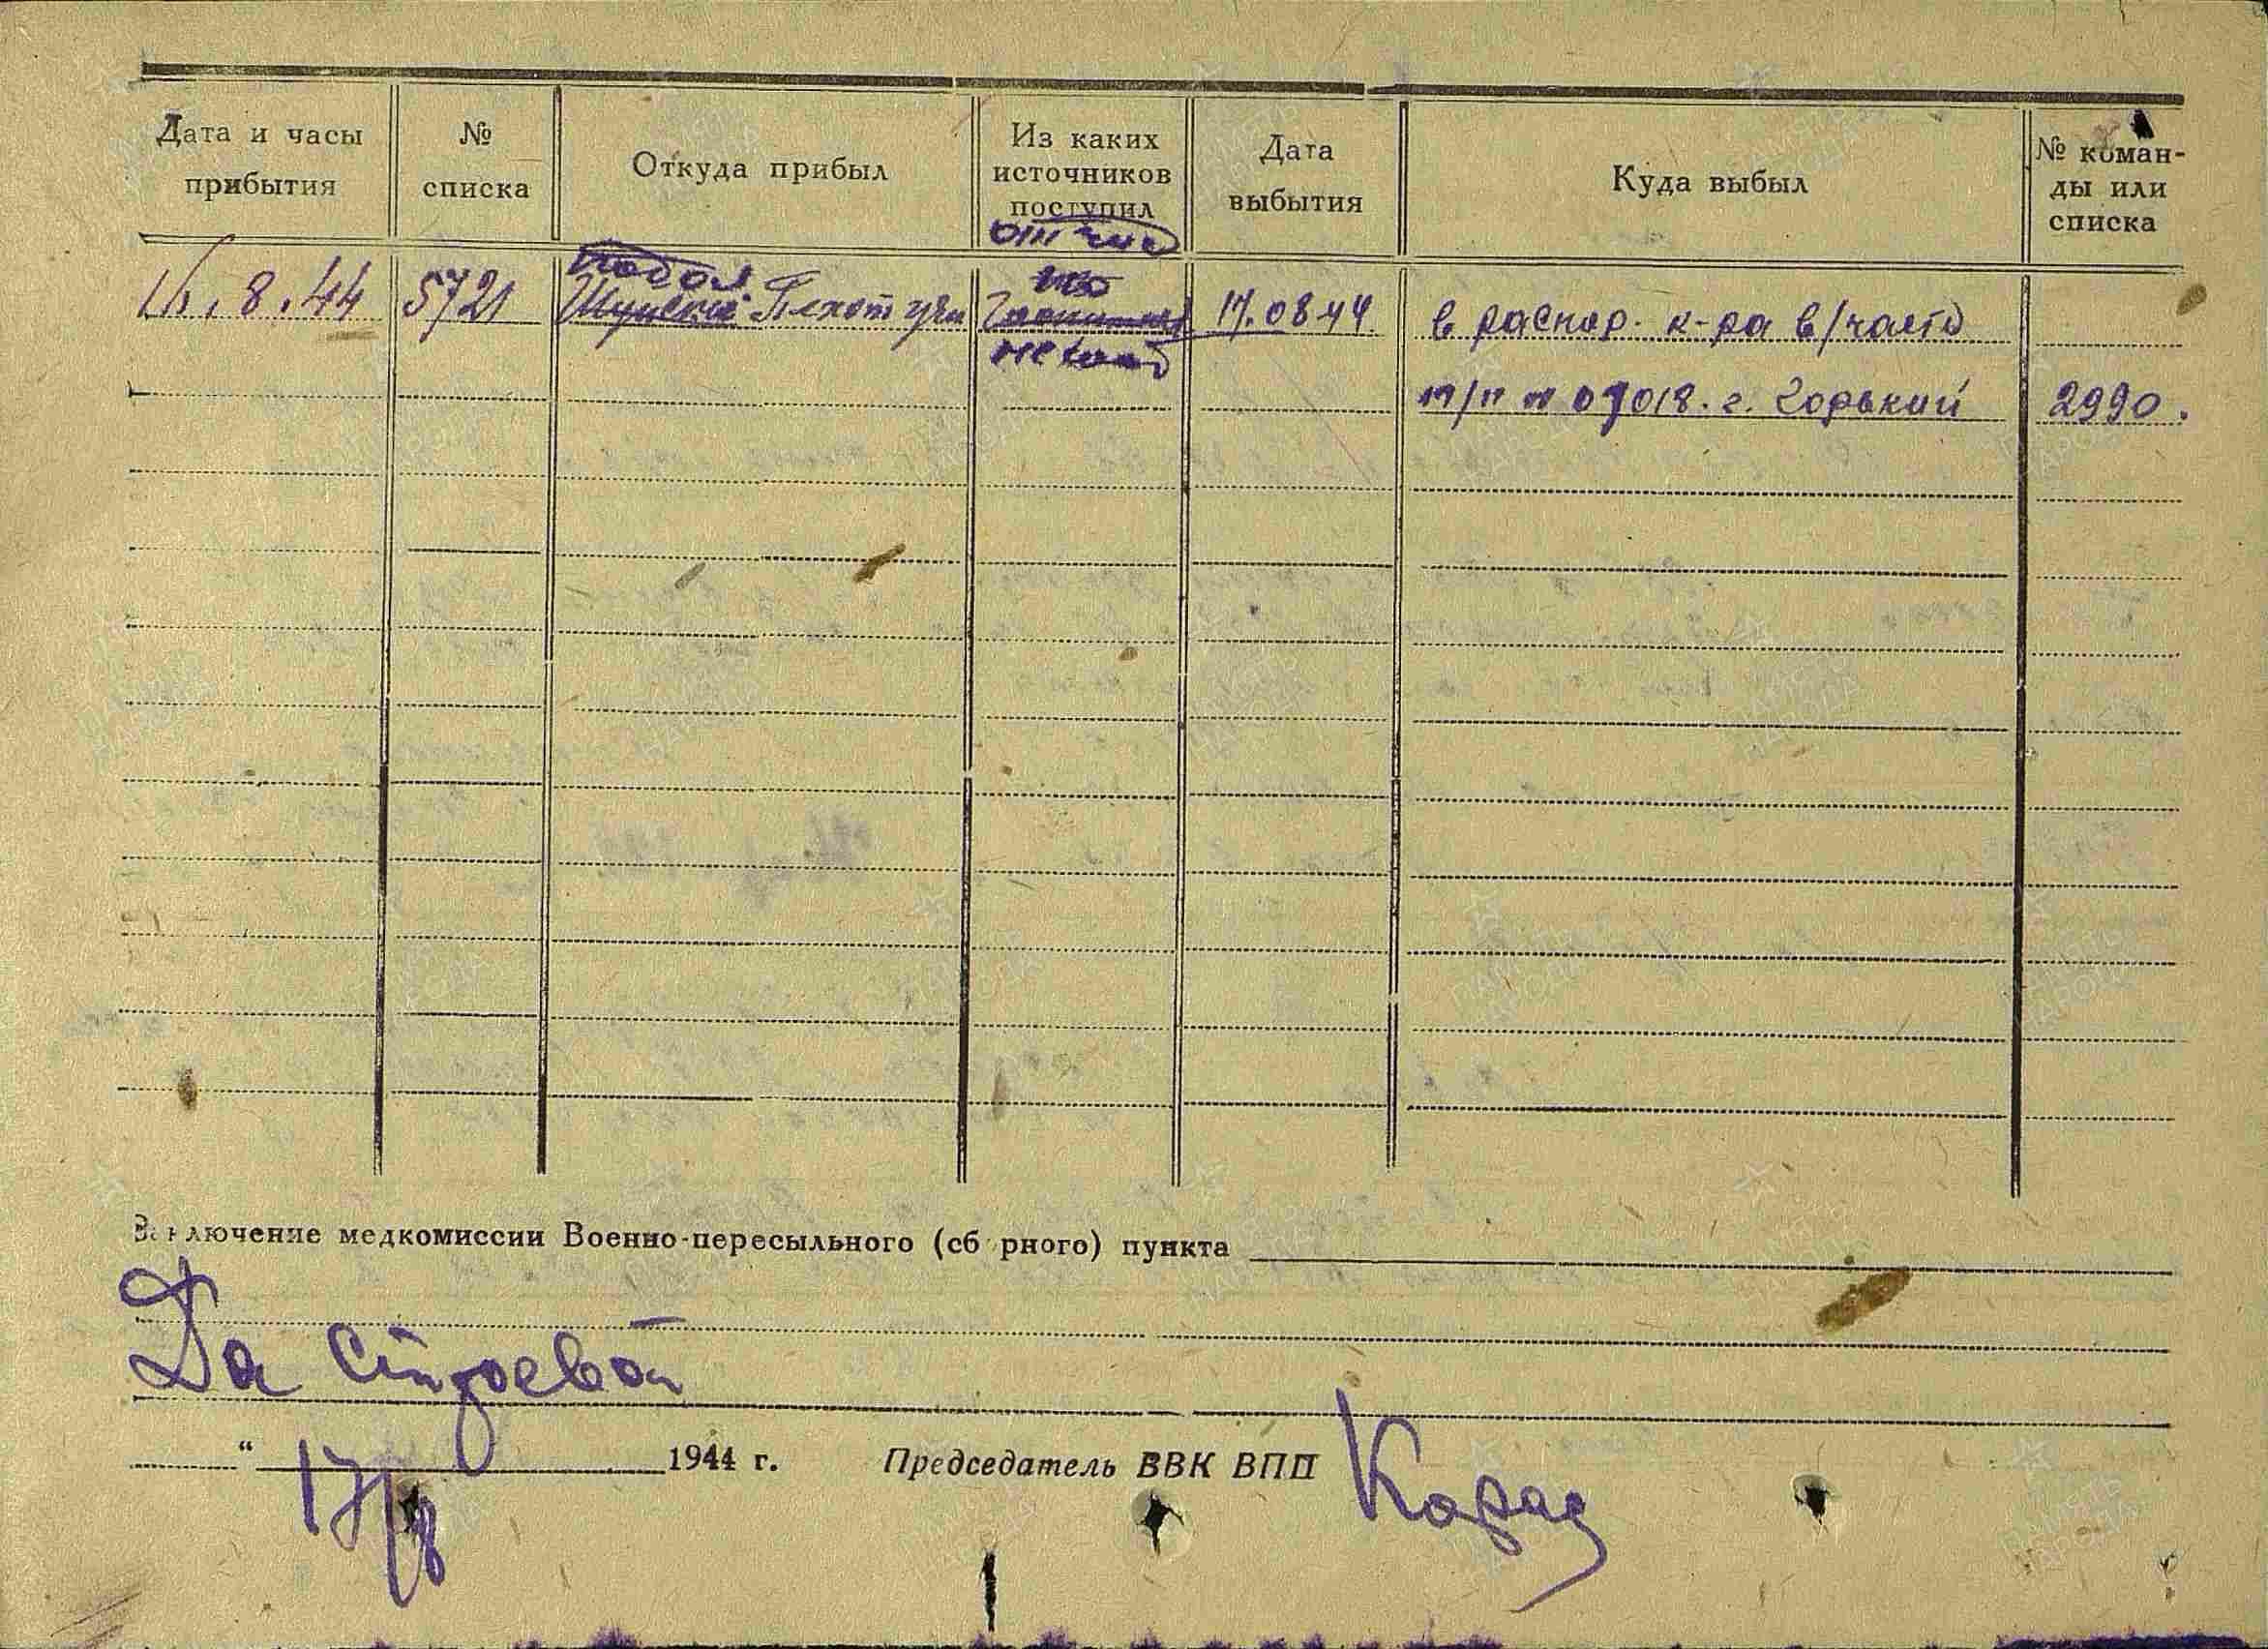 Дата и часы прибытия
№ списка
Откуда прибыл
Из каких источников поступил
Дата выбытия
Куда выбыл
№ коман-
ды или
списка
16.8.44 5721 Подол Пехот учи 17.08.44 в распор. к-ра в/части
п/п 07018. г. Горький 2990.
Заключение медкомиссии Военно-пересыльного (сб рного) пункта
Да строевой
“ 17/8 1944 г. Председатель ВВК ВПП